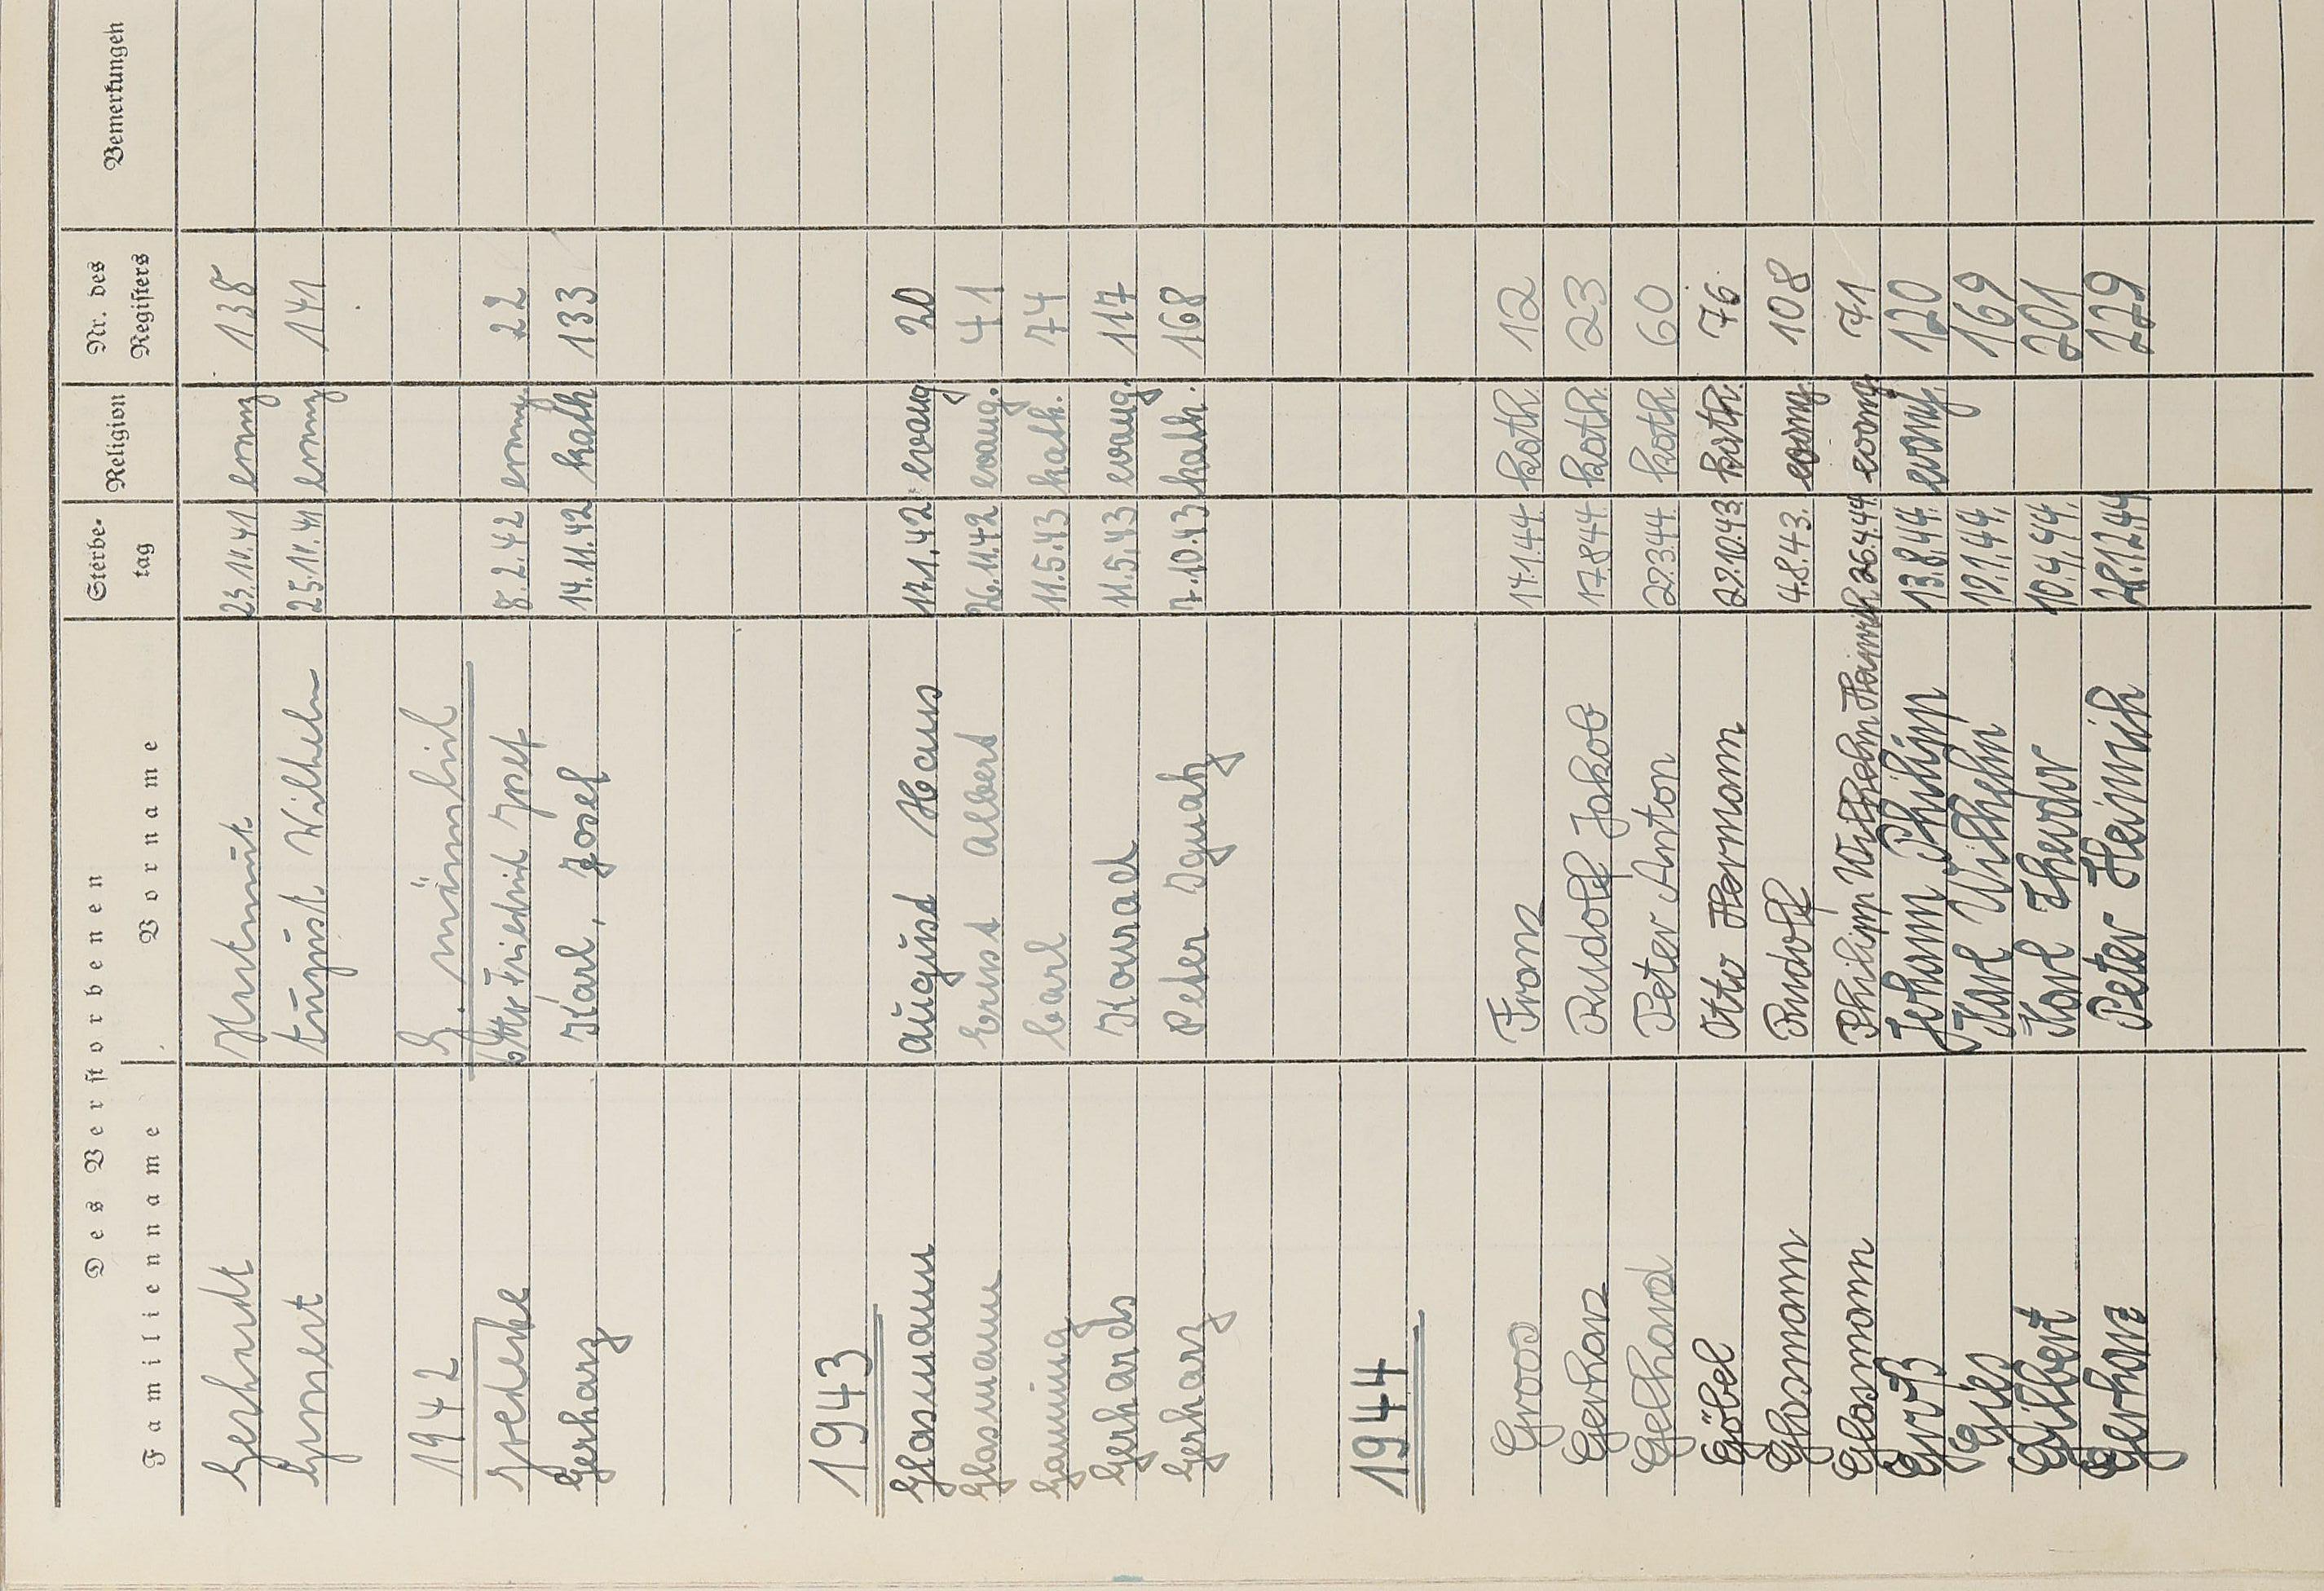 Des Verstorbenen Sterbetag Religion Nr. des Registers Bemerkungen
Familienname Vorname
Gerhardt Hartmut 23.11.41 evang 138
August Wilhelm 25.11.41 evang 141
1942 G. männlich
Otto Friedrich Josef 8.2.42 evang. 22
Gerharz Karl, Josef 14.11.42 kath 133
1943
Glasmann August Hans 17.1.42 evang 20
Glasmann Ernst Albert 26.11.42 evang. 41
Carl 11.5.43 kath. 74
Gerhards Konrad 11.5.43 evang. 117
Gerharz Peter Ignatz 7.10.43 kath. 168
1944
Groos Franz 14.1.44. kath. 12
Gerharz Rudolf Jakob 17.8.44. kath. 23
Gelhard Peter Anton 22.3.44. kath. 60
Göbel Otto Hermann 22.10.43. kath. 76.
Glasmann Rudolf 4.8.43. evang. 108
Glasmann Philipp Wilhelm Heinrich 26.4.44. evang. 71
Groß Johann Philipp 13.8.44. evang. 120
Gies Karl Wilhelm 12.1.44. 169
Gilbert Karl Theodor 10.4.44. 201
Gerharz Peter Heinrich 28.12.44 229